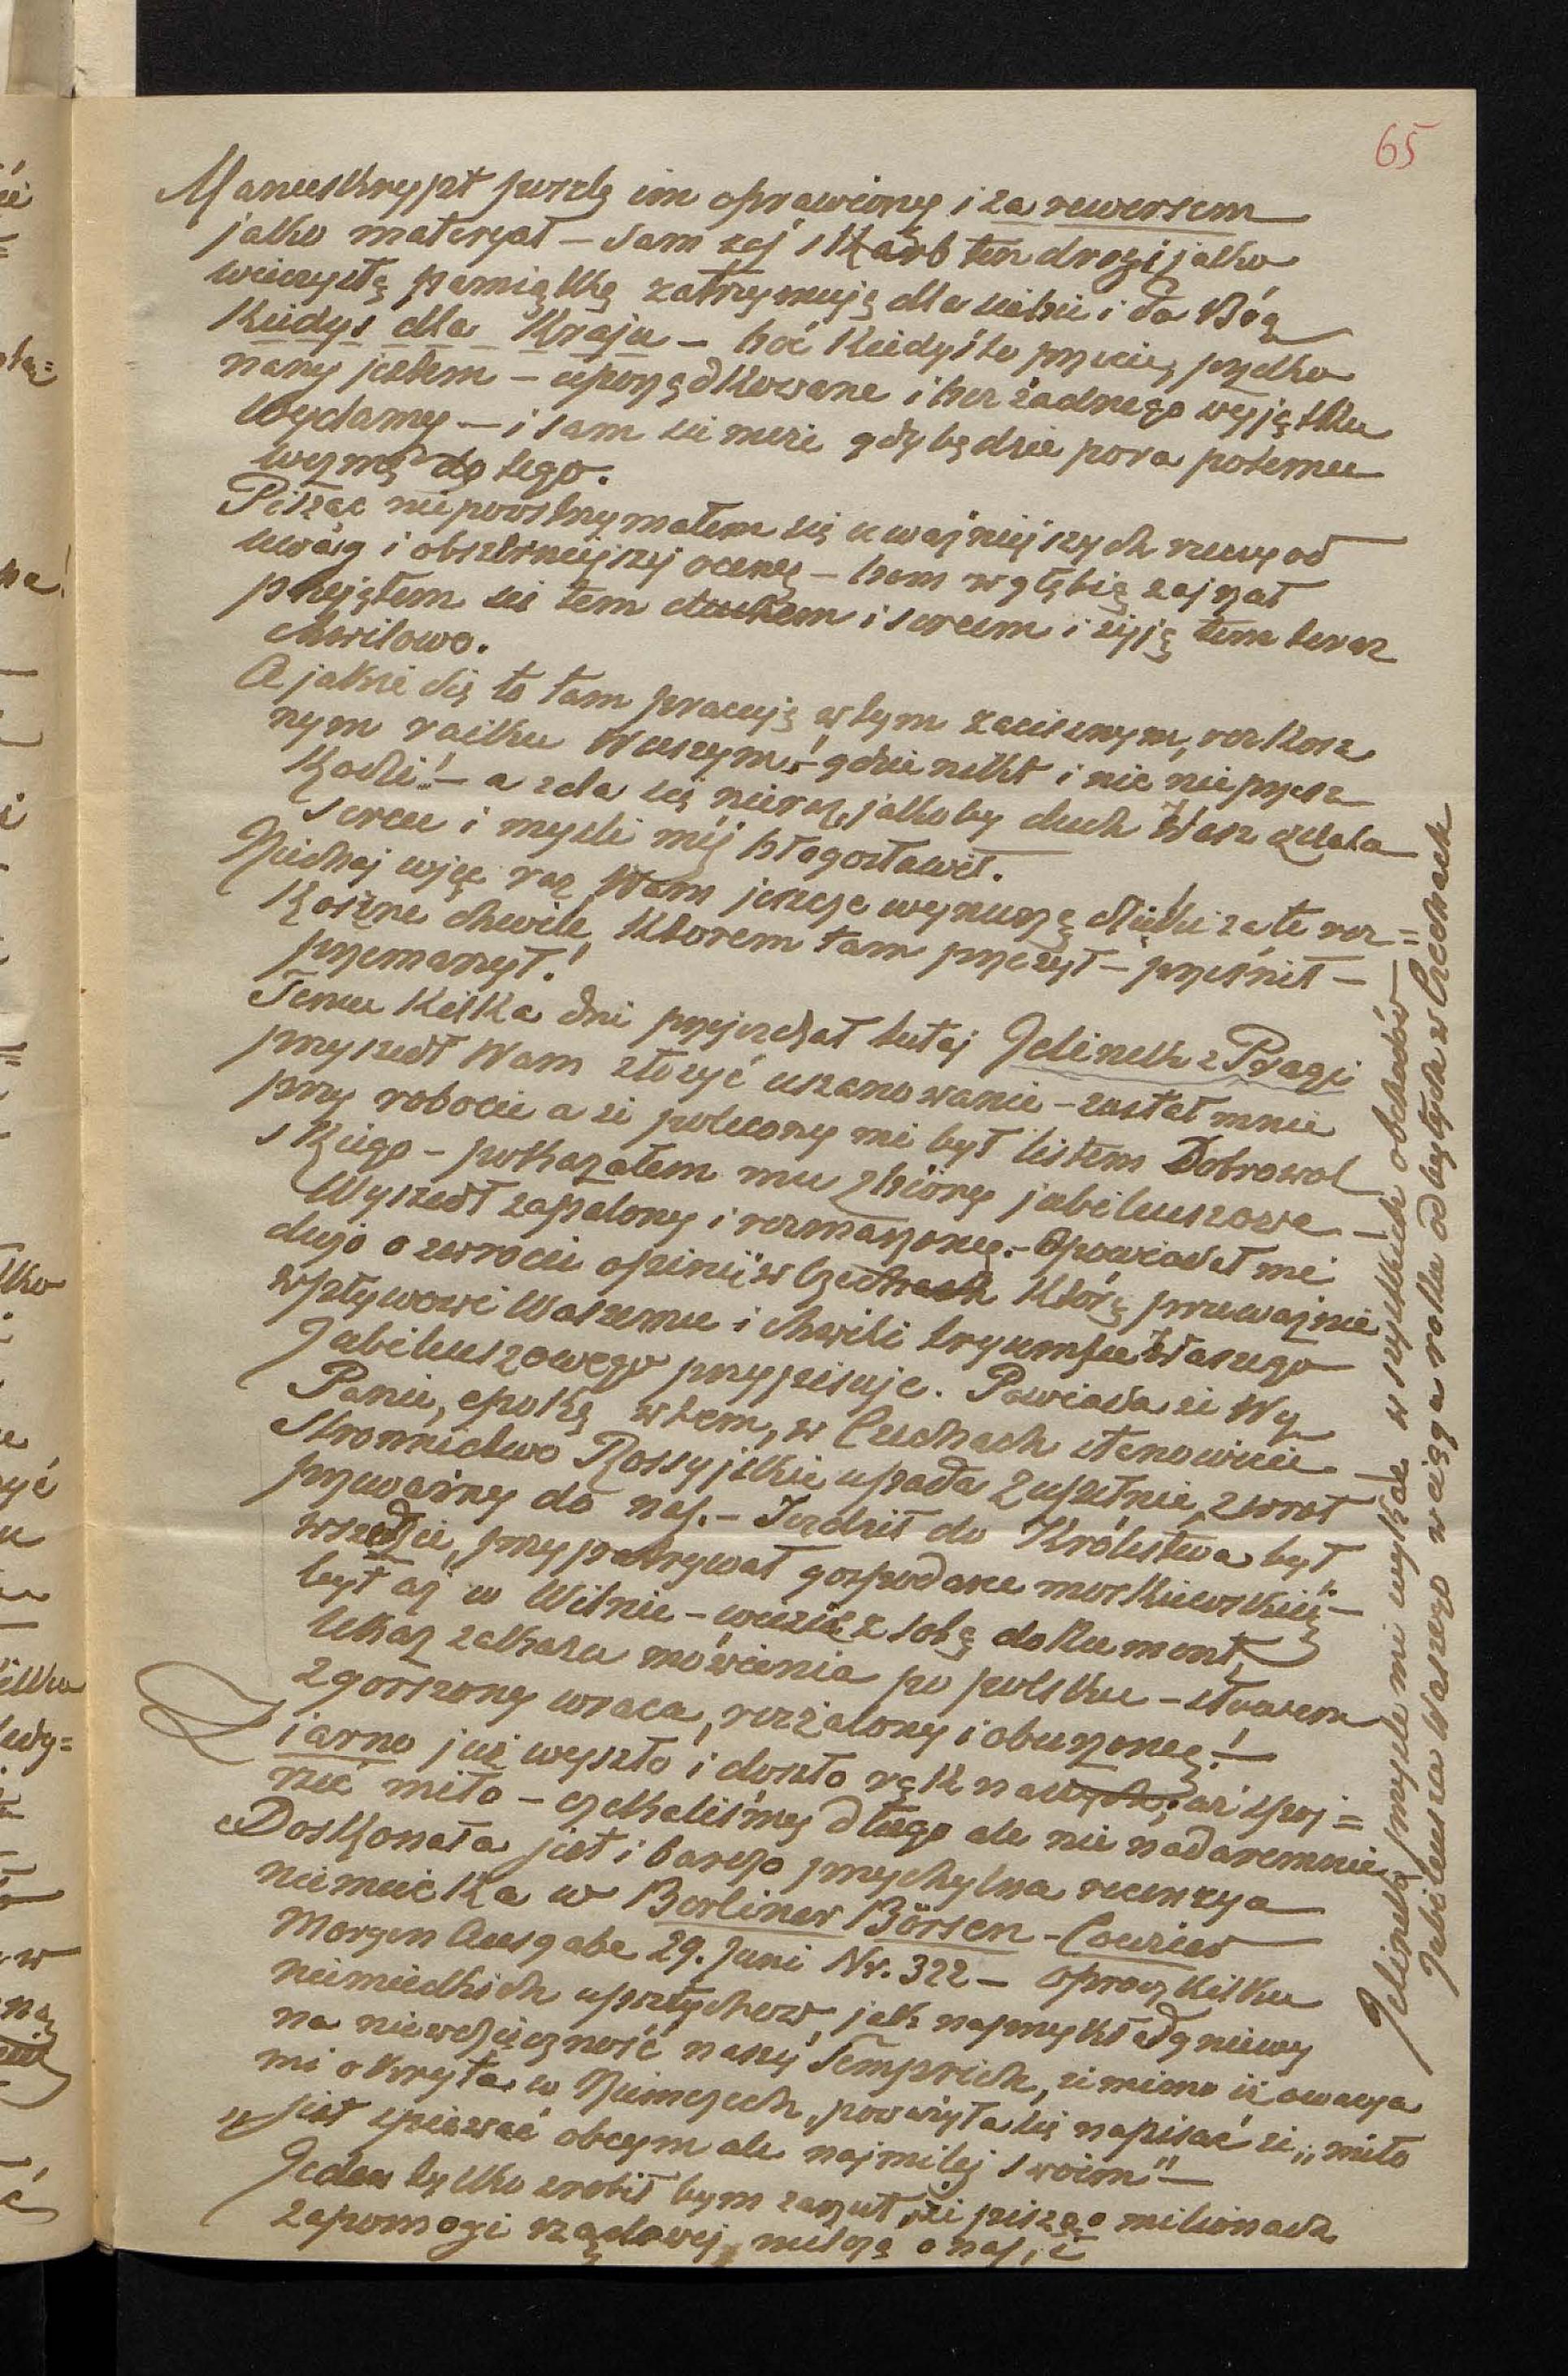 65
Manuskrypt poszlę im oprawiony i za rewersem
jako materyał – sam zaś skarb ten drogi jako
wieczystą pamiątkę zatrzymuję dla siebie i da Bóg
Kiedyś dla Kraju – boć kiedyś to przecię, przeko
nany jestem – uporządkowane i bez żadnego wyjątku
wydamy – i sam się może gdy będzie pora potemu
wezmę do tego.
Pisząc nie powstrzymałem się uważniejszych
uwag i obszerniejszej oceny – bom w głębią zajrzał
przejąłem się tem duchem i sercem i żyję tem teraz
chwilowo.
A jakże się to tam pracuję w tym zacisznym, rozkosz
nym raiku Waszym! – gdzie nikt i nic nie przesz
kodzi! – a zda się nieraz, jakoby duch Wasz zdala
sercu i myśli mej błogosławił.
Niechaj więc raz Wam jeszcze wynurzę dzięki za te roz=
koszne chwile, którem tam przeżył – prześnił –
przemarzył!
Temu kilka dni przyjeżdżał tutaj Jelinek z Pragi
przyszedł Wam złożyć uszanowanie – zastał mnie
przy robocie a że polecony mi był listem Dobrowol
skiego – pokazałem mu zbiory jubileuszowe –
Wyszedł zapalony i rozmarzony. – Opowiadał mi
dużo o zwrocie opinii w Czechach którą przeważnie
wpływowi Waszemu i chwili tryumfu Waszego
Jubileuszowego przypisuje. Powiada że Wy
Panie, epokę w tem, w Czechach stanowicie –
Stronnictwo Rossyjskie upada zupełnie, zwrot
przeważny do nas. – Jeździł do Królestwa był
wszędzie, przypatrywał gospodarce moskiewskiej –
był aż w Wilnie – wiezie z sobą dokument,
Ukaz zakazu mówienia po polsku – słowem
zgorszony wraca, rozżalony i oburzony! –
Ziarno już wyszło i doszło rąk naszych, aż spoj=
rzeć miło – czekaliśmy długo ale nie nadaremnie
Doskonała jest i bardzo przychylna recenzya
niemiecka w Berliner Börsen-Courier
Morgen Ausgabe 29. Juni Nr. 322 – oprócz kilku
niemieckich uprzytyków, jak naprzykład gniewy
na niewdzięczność naszej Semprich, że mimo iż owacya
mi okryta w Niemczech, poważyła się napisać że „miło
„jest śpiewać obcym ale najmilej swoim" –
Jeden tylko zrobił bym zarzut, że pisząc o milionach
zapomogi rządowej, milczą o nas, i
Jelinek przyśle mi wykaz wszystkich obchodów
Jubileusza Waszego w ciągu roku odbytych w Czechach